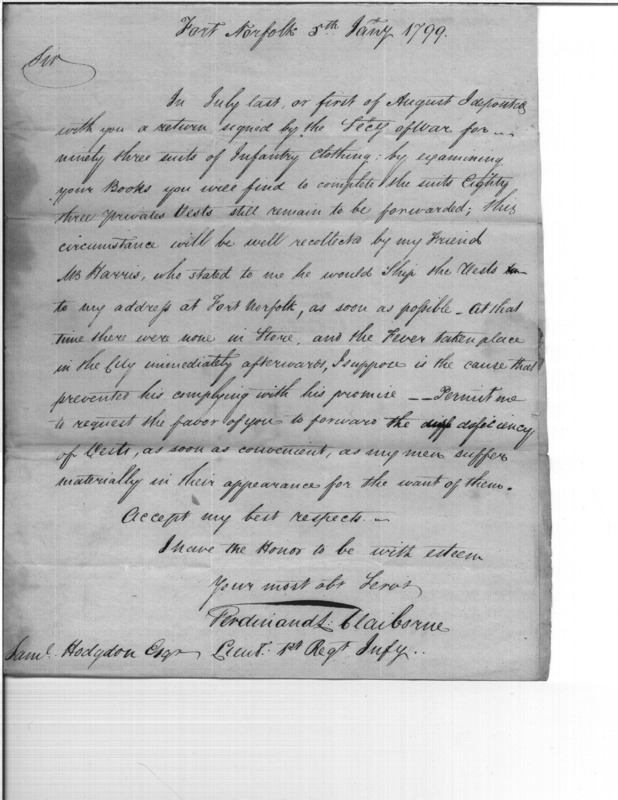 Fort Norfolk 5th Jany 1799.
Sir
In July last, or first of August I deposited
with you a return signed by the Secy of War for —
ninety three suits of Infantry Clothing: by examining
your Books you will find to complete the suits Eighty
three privates Vests still remain to be forwarded; this
circumstance will be well recollected by my Friend
Mr Harris, who stated to me he would Ship the Vests
to my address at Fort Norfolk, as soon as possible — At that
time there were none in Store, and the Fever taken place
in the City immediately afterwards, I suppose is the cause that
prevented his complying with his promise — Permit me
to request the favor of you to forward the deficiency
of Vests, as soon as convenient, as my men suffer
materially in their appearance for the want of them.
Accept my best respects. —
I have the Honor to be with esteem
Your most obt Servt
Ferdinand L. Claiborne
Saml. Hodgdon Esqr Lieut. 1st Regt Infy..